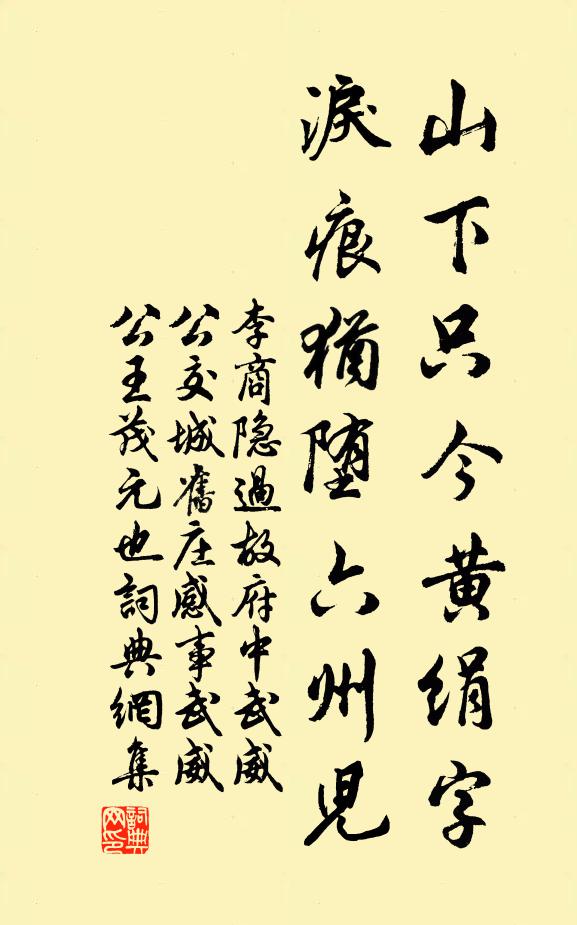 山下只今黄绢字
淚痕猶堕六州児
李商隐過故府中武威
公交城舊庄感事武威
公王茂元也詞典網集
詞典网印